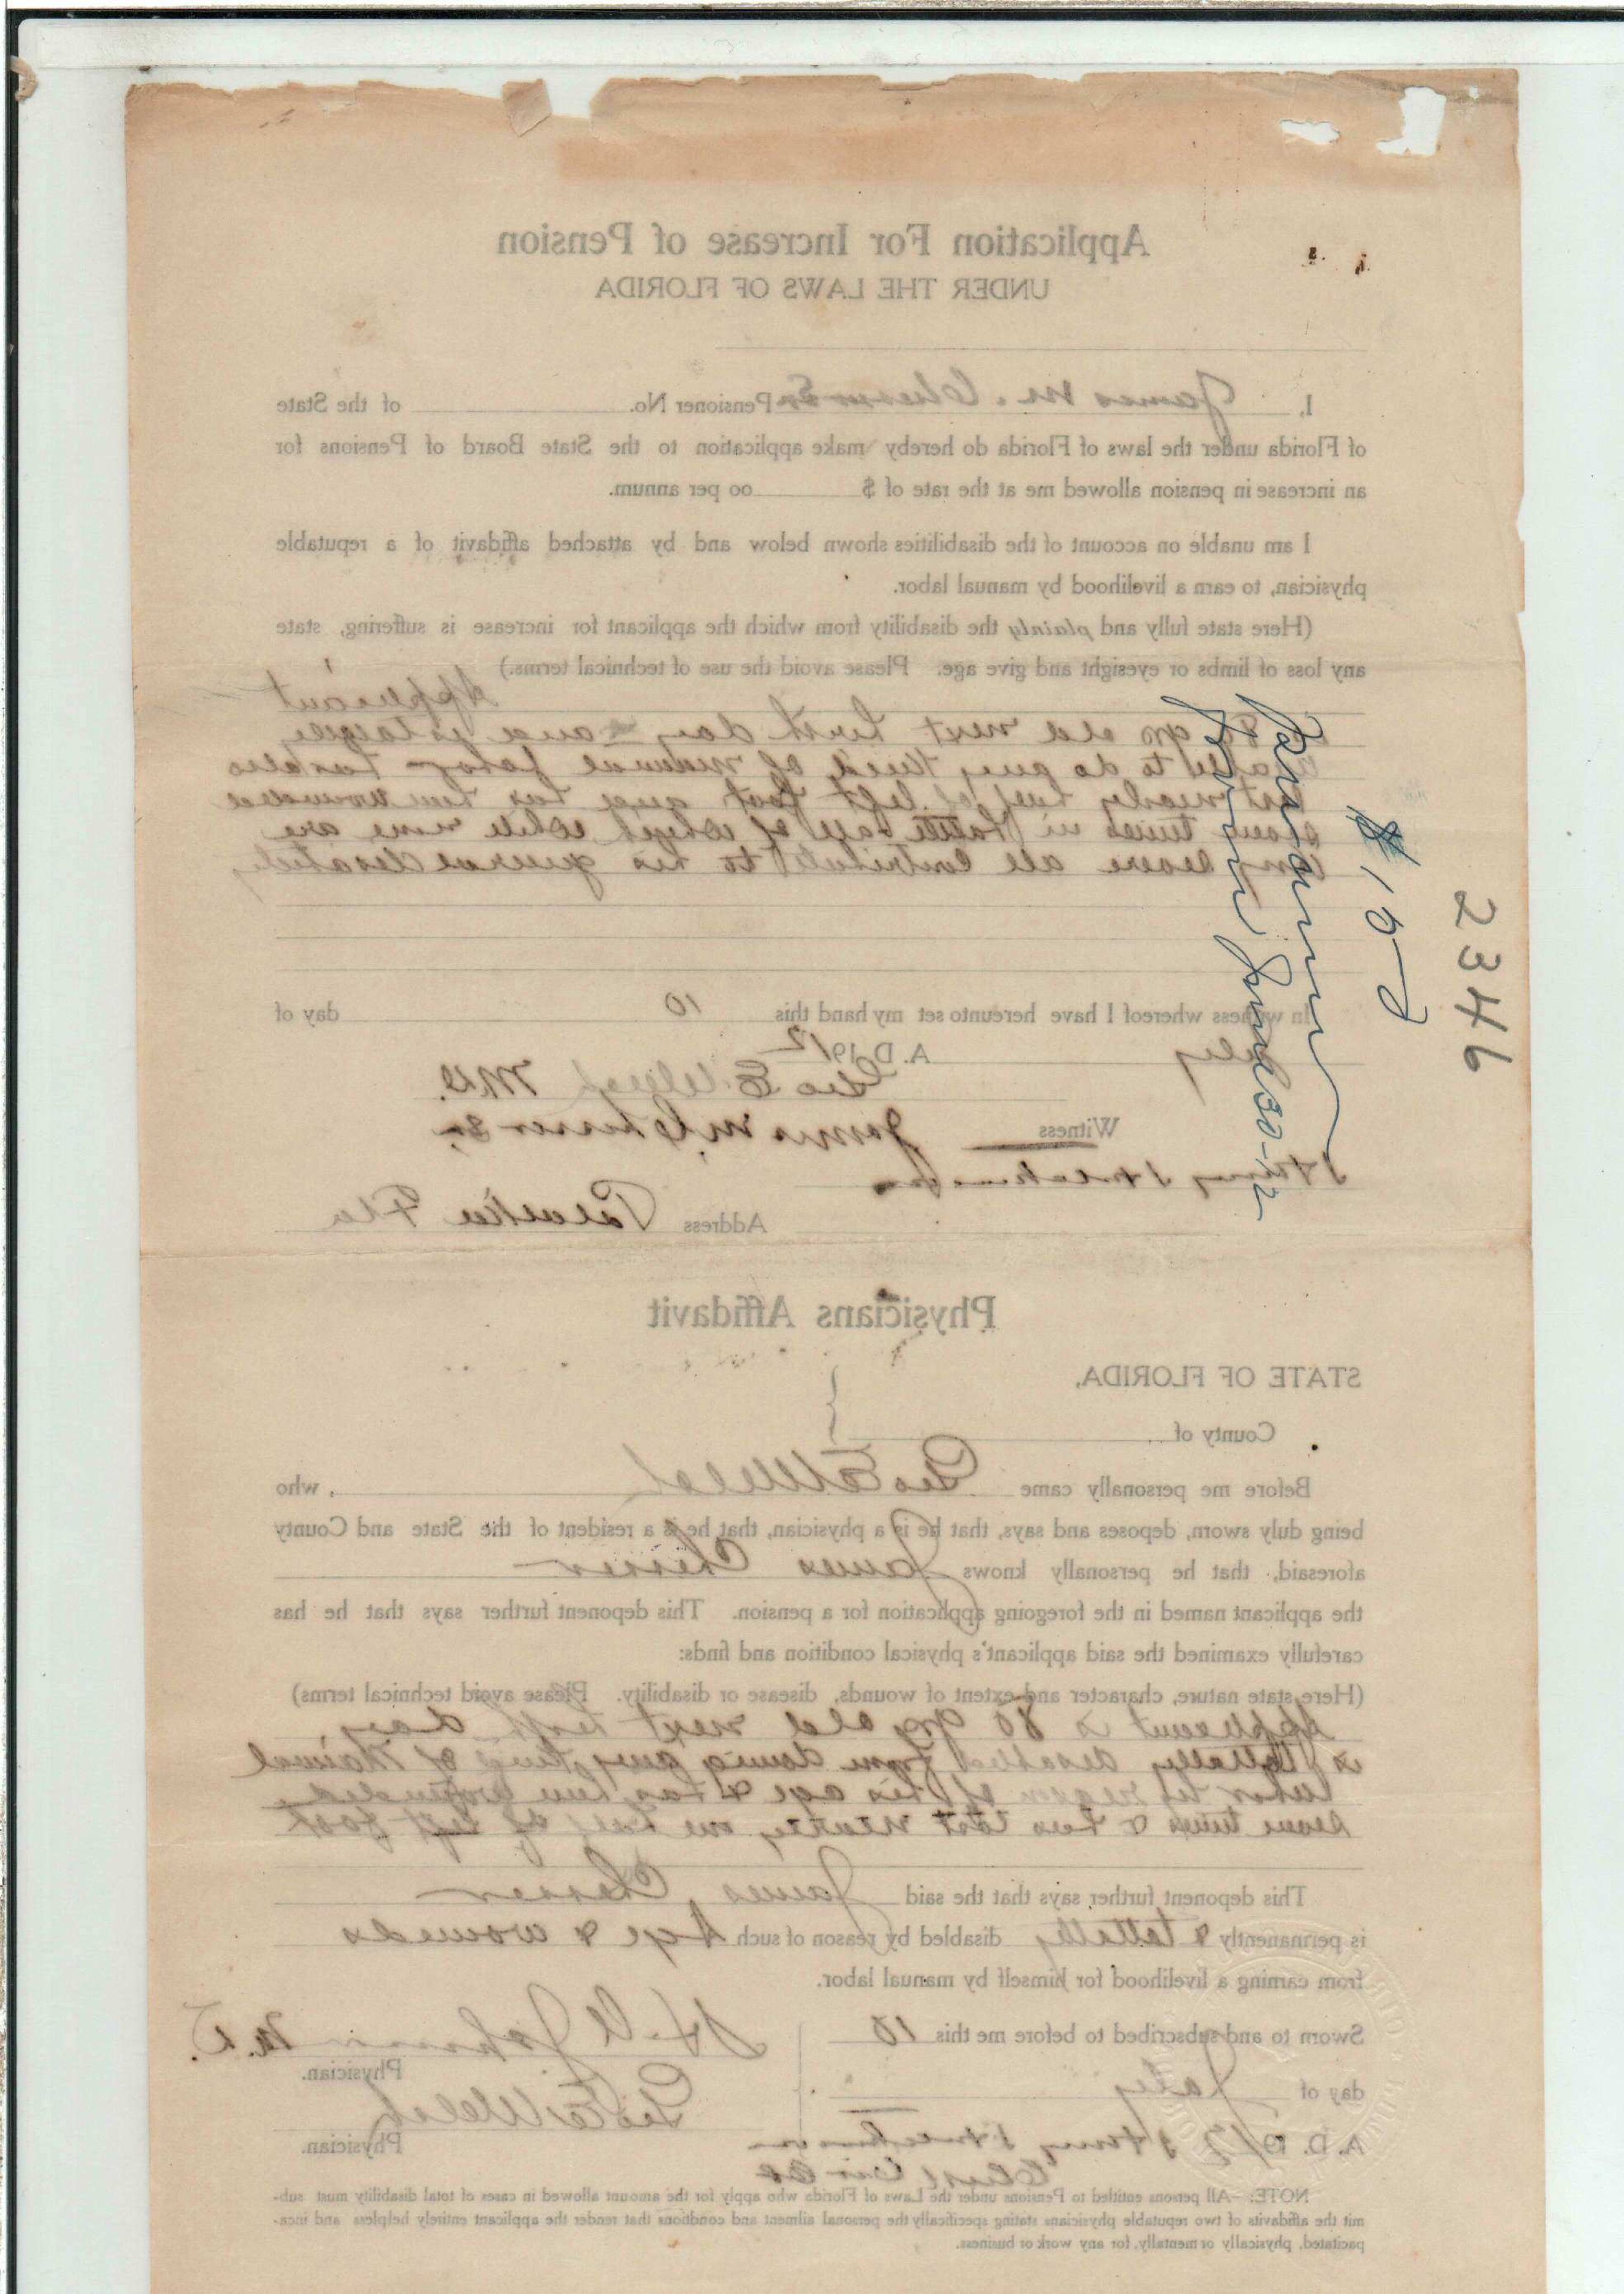 Application For Increase of Pension
UNDER THE LAWS OF FLORIDA
I, James M. Chesser Sr Pensioner No. of the State
of Florida under the laws of Florida do hereby make application to the State Board of Pensions for
an increase in pension allowed me at the rate of $ oo per annum.
I am unable on account of the disabilities shown below and by attached affidavit of a reputable
physician, to earn a livelihood by manual labor.
(Here state fully and plainly the disability from which the applicant for increase is suffering, state
any loss of limbs or eyesight and give age. Please avoid the use of technical terms.)
Applicant
80 yrs old next birth day and is totally
unable to do any kind of manual labor has also
lost nearly half of left foot and has been wounded
seven times in battle all of which while none are
very severe all contribute to his general disability
In witness whereof I have hereunto set my hand this 10 day of
July A. D. 1912
Geo E Welch M.D.
Witness James M. Chesser Sr.
Henry Hutchinson
Address Palatka Fla
$150
2346
June 30-12
Physicians Affidavit
STATE OF FLORIDA,
County of
Before me personally came Geo E Welch, who
being duly sworn, deposes and says, that he is a physician, that he is a resident of the State and County
aforesaid, that he personally knows James Chesser
the applicant named in the foregoing application for a pension. This deponent further says that he has
carefully examined the said applicant's physical condition and finds:
(Here state nature, character and extent of wounds, disease or disability. Please avoid technical terms)
Applicant is 80 yrs old next birth day,
is totally disabled from doing any kind of Manual
labor by reason of his age & has been wounded
seven times & has lost nearly one half of left foot
This deponent further says that the said James Chesser
is permanently & totally disabled by reason of such Age & wounds
from earning a livelihood for himself by manual labor.
Sworn to and subscribed to before me this 10
day of July
A. D. 1912 Henry Hutchinson
Clerk Cir Co
Johnson M.D.
Physician.
Geo E Welch
Physician.
NOTE:—All persons entitled to Pensions under the Laws of Florida who apply for the amount allowed in cases of total disability must sub-
mit the affidavits of two reputable physicians stating specifically the personal ailment and conditions that render the applicant entirely helpless and inca-
pacitated, physically or mentally, for any work or business.